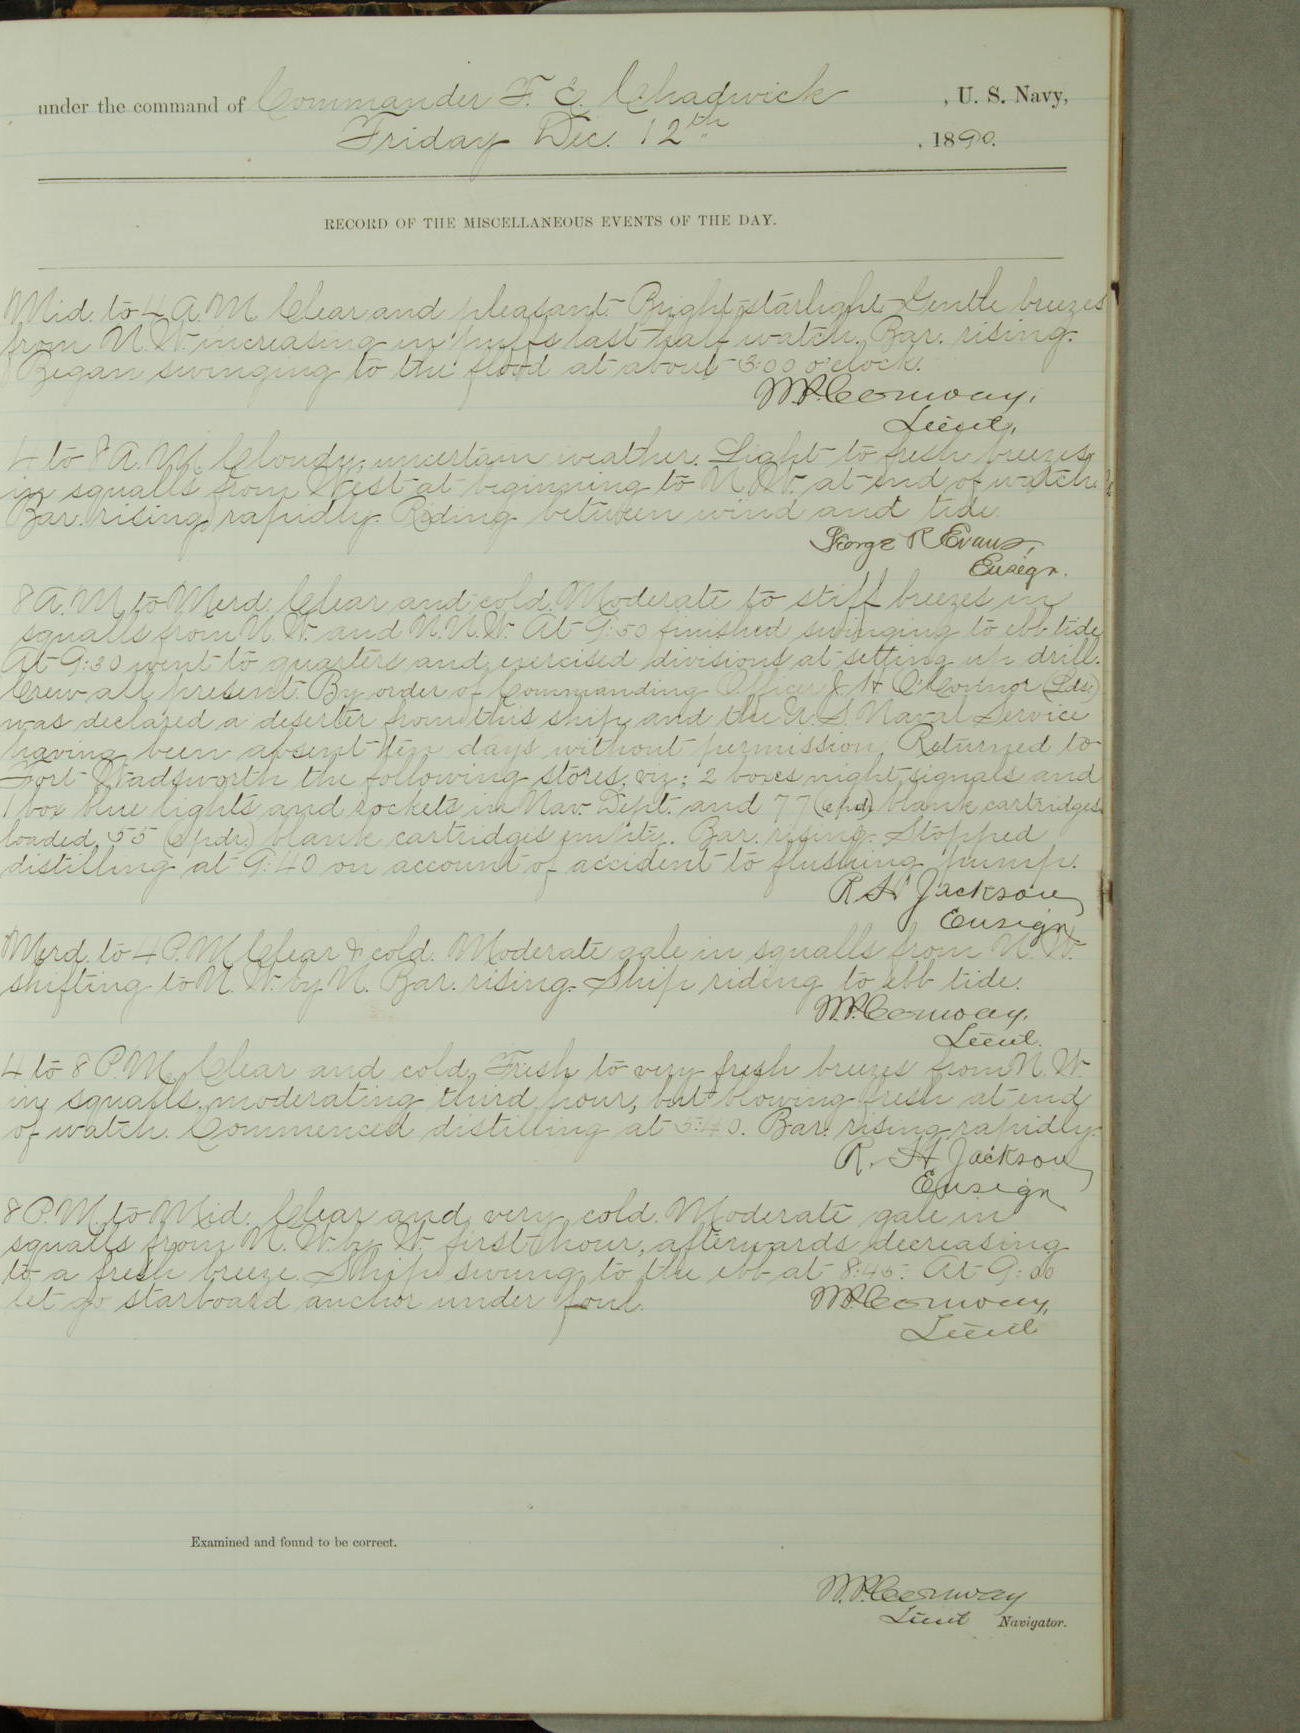 under the command of Commander F. E. Chadwick, U. S. Navy,
Friday Dec. 12th, 1890.
RECORD OF THE MISCELLANEOUS EVENTS OF THE DAY.
Mid. to 4 A.M. Clear and pleasant. Bright starlight. Gentle breezes
from N.W. increasing in puffs last half watch. Bar. rising.
Began swinging to the flood at about 3:00 o'clock.
W.P. Conway,
Lieut.
4 to 8 A.M. Cloudy, uncertain weather. Light to fresh breezes
in squalls from West at beginning to N.W. at end of watch.
Bar. rising rapidly. Riding between wind and tide.
George R Evans,
Ensign.
8 A.M. to Merd. Clear and cold. Moderate to stiff breezes in
squalls from N.W. and N.N.W. At 9:50 finished swinging to ebb tide
At 9:30 went to quarters and exercised divisions at setting up drill.
Crew all present. By order of Commanding Officer J. W. O'Connor (Lds.)
was declared a deserter from this ship and the U.S. Naval Service
having been absent ten days without permission. Returned to
Fort Wadsworth the following stores; viz; 2 boxes night signals and
1 box blue lights and rockets in Nav. Dept. and 77 (6 pdr) blank cartridges
loaded, 55 (3 pdr.) blank cartridges empty. Bar. rising. Stopped
distilling at 9:40 on account of accident to flushing pump.
R H Jackson
Ensign
Merd. to 4 P.M. Clear & cold. Moderate gale in squalls from N.W.
shifting to N.W. by N. Bar. rising. Ship riding to ebb tide.
W.P. Conway,
Lieut.
4 to 8 P.M. Clear and cold. Fresh to very fresh breezes from N.W
in squalls, moderating third hour, but blowing fresh at end
of watch. Commenced distilling at 5:40. Bar. rising rapidly.
R. H Jackson
Ensign
8 P.M. to Mid. Clear and very cold. Moderate gale in
squalls from N.W. by W. first hour, afterwards decreasing
to a fresh breeze. Ship swung to the ebb at 8:45. At 9:00
let go starboard anchor under foot.
W.P. Conway,
Lieut
Examined and found to be correct.
W.P. Conway
Lieut Navigator.